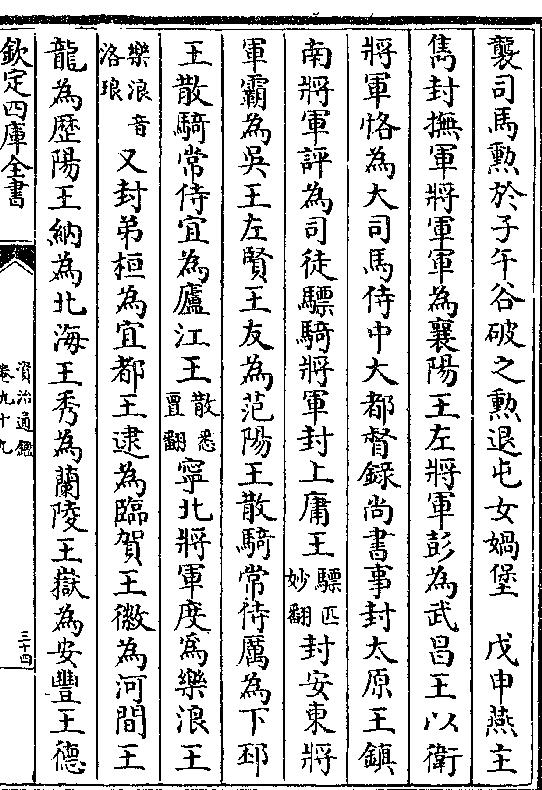 襲司馬勲於子午谷破之勲退屯女媧堡　戊申燕主
雋封撫軍將軍軍為襄陽王左將軍彭為武昌王以衛
將軍恪為大司馬侍中大都督録尚書事封太原王鎮
南將軍評為司徒驃騎將軍封上庸王驃匹妙翻封安東將
軍霸為吳王左賢王友為范陽王散騎常侍厲為下邳
王散騎常侍宜為廬江王散悉亶翻寧北將軍度為樂浪王
樂浪音洛琅又封弟桓為宜都王逮為臨賀王徽為河間王
龍為歴陽王納為北海王秀為蘭陵王嶽為安豐王德
欽定四庫全書
資治通鑑
卷九十九
三十四